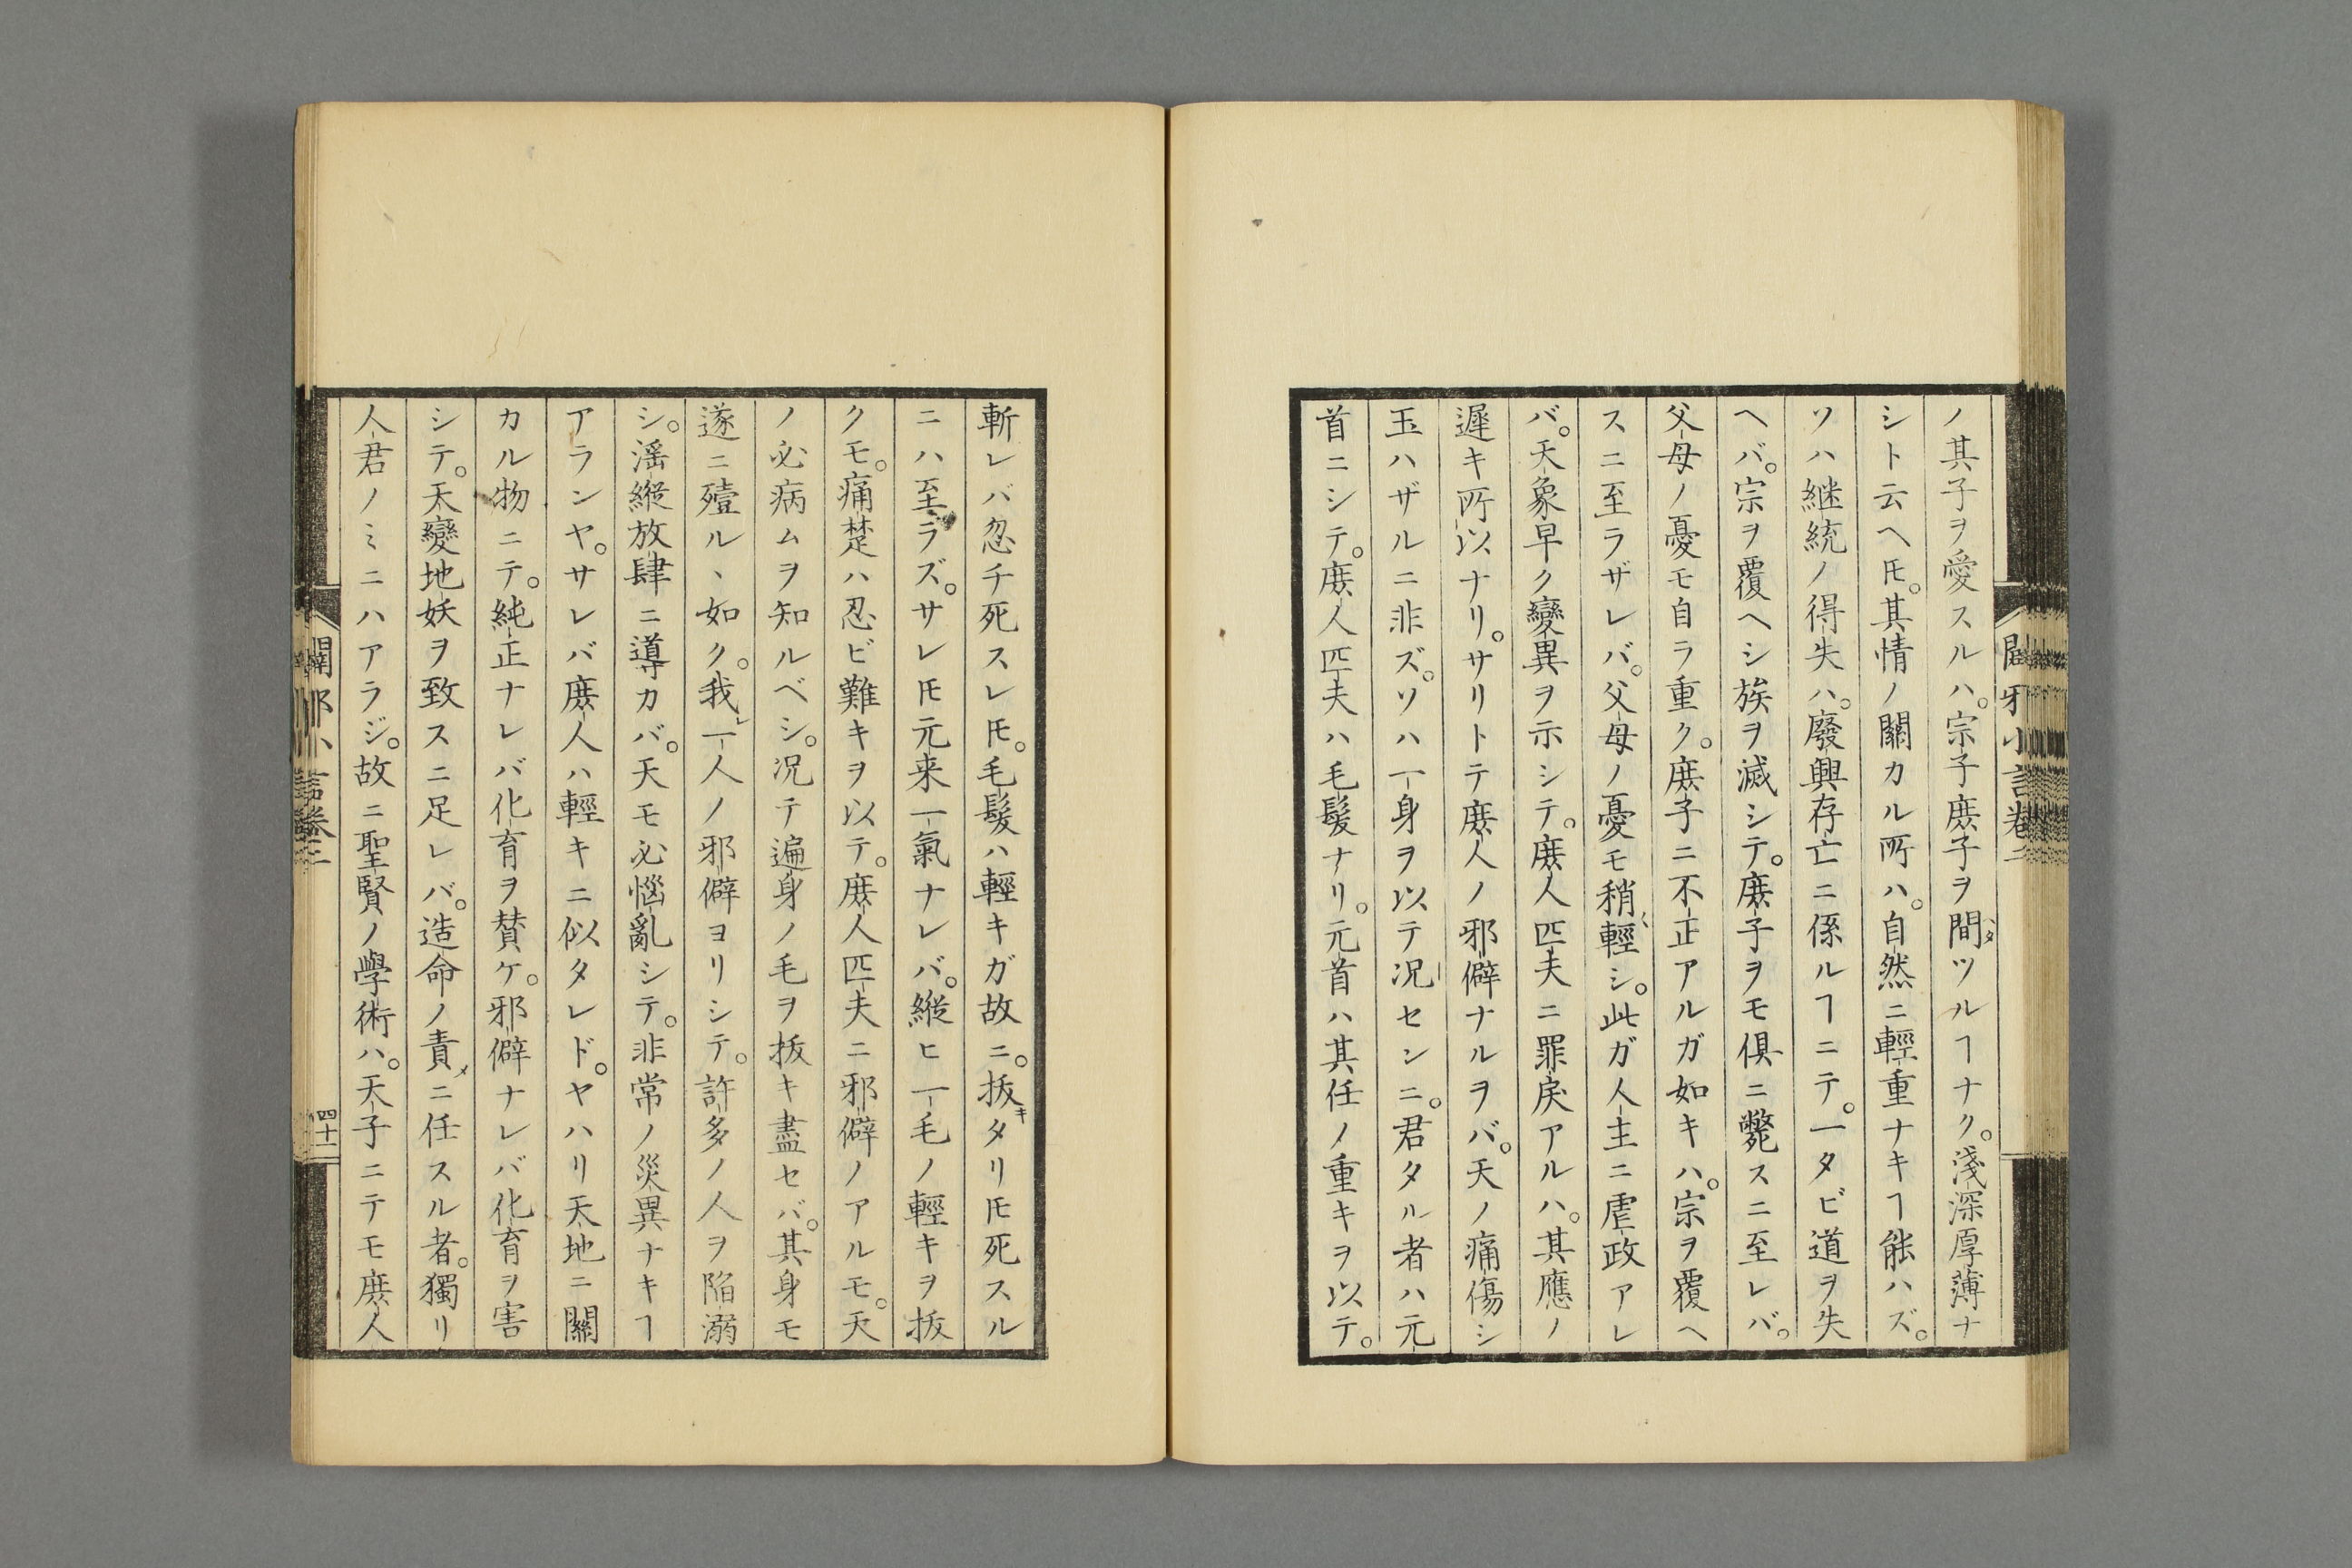 ノ其子ヲ愛スルハ。宗子庶子ヲ間ヅツルヿナク。淺深厚薄ナ
シト云ヘ𪜈。其情ノ關カル所ハ。自然ニ輕重ナキヿ能ハズ。
ソハ継統ノ得失ハ。廢興存亡ニ係ルヿニテ。一タビ道ヲ失
ヘバ。宗ヲ覆ヘシ族ヲ滅シテ。庶子ヲモ倶ニ斃スニ至レバ。
父母ノ憂モ自ラ重ク。庶子ニ不正アルガ如キハ。宗ヲ覆ヘ
スニ至ラザレバ。父母ノ憂モ稍輕シ。此ガ人主ニ虐政アレ
バ。天象早ク變異ヲ示シテ。庶人匹夫ニ罪戾アルハ。其應ノ
遲キ所以ナリ。サリトテ庶人ノ邪僻ナルヲバ。天ノ痛傷シ
玉ハザルニ非ズ。ソハ一身ヲ以テ況センニ。君タル者ハ元
首ニシテ。庶人匹夫ハ毛髮ナリ。元首ハ其任ノ重キヲ以テ。
闢邪小言卷二
斬レバ忽チ死スレ𪜈。毛髮ハ輕キガ故ニ。抜キタリ𪜈死スル
ニハ至ラズ。サレ𪜈元来一氣ナレバ。縱ヒ一毛ノ輕キヲ抜
クモ。痛楚ハ忍ビ難キヲ以テ。庶人匹夫ニ邪僻ノアルモ。天
ノ必病ムヲ知ルベシ。況テ遍身ノ毛ヲ抜キ盡セバ。其身モ
遂ニ殪ルヽ如ク。我レ一人ノ邪僻ヨリシテ。許多ノ人ヲ陷溺
シ。滛縱放肆ニ導カバ。天モ必惱亂シテ。非常ノ災異ナキヿ
アランヤ。サレバ庶人ハ輕キニ似タレド。ヤハリ天地ニ關
カル物ニテ。純正ナレバ化育ヲ賛ケ。邪僻ナレバ化育ヲ害
シテ。天變地妖ヲ致スニ足レバ。造命ノ責メニ任スル者。獨リ
人君ノミニハアラジ。故ニ聖賢ノ學術ハ。天子ニテモ庶人
闢邪小言卷二
四十一